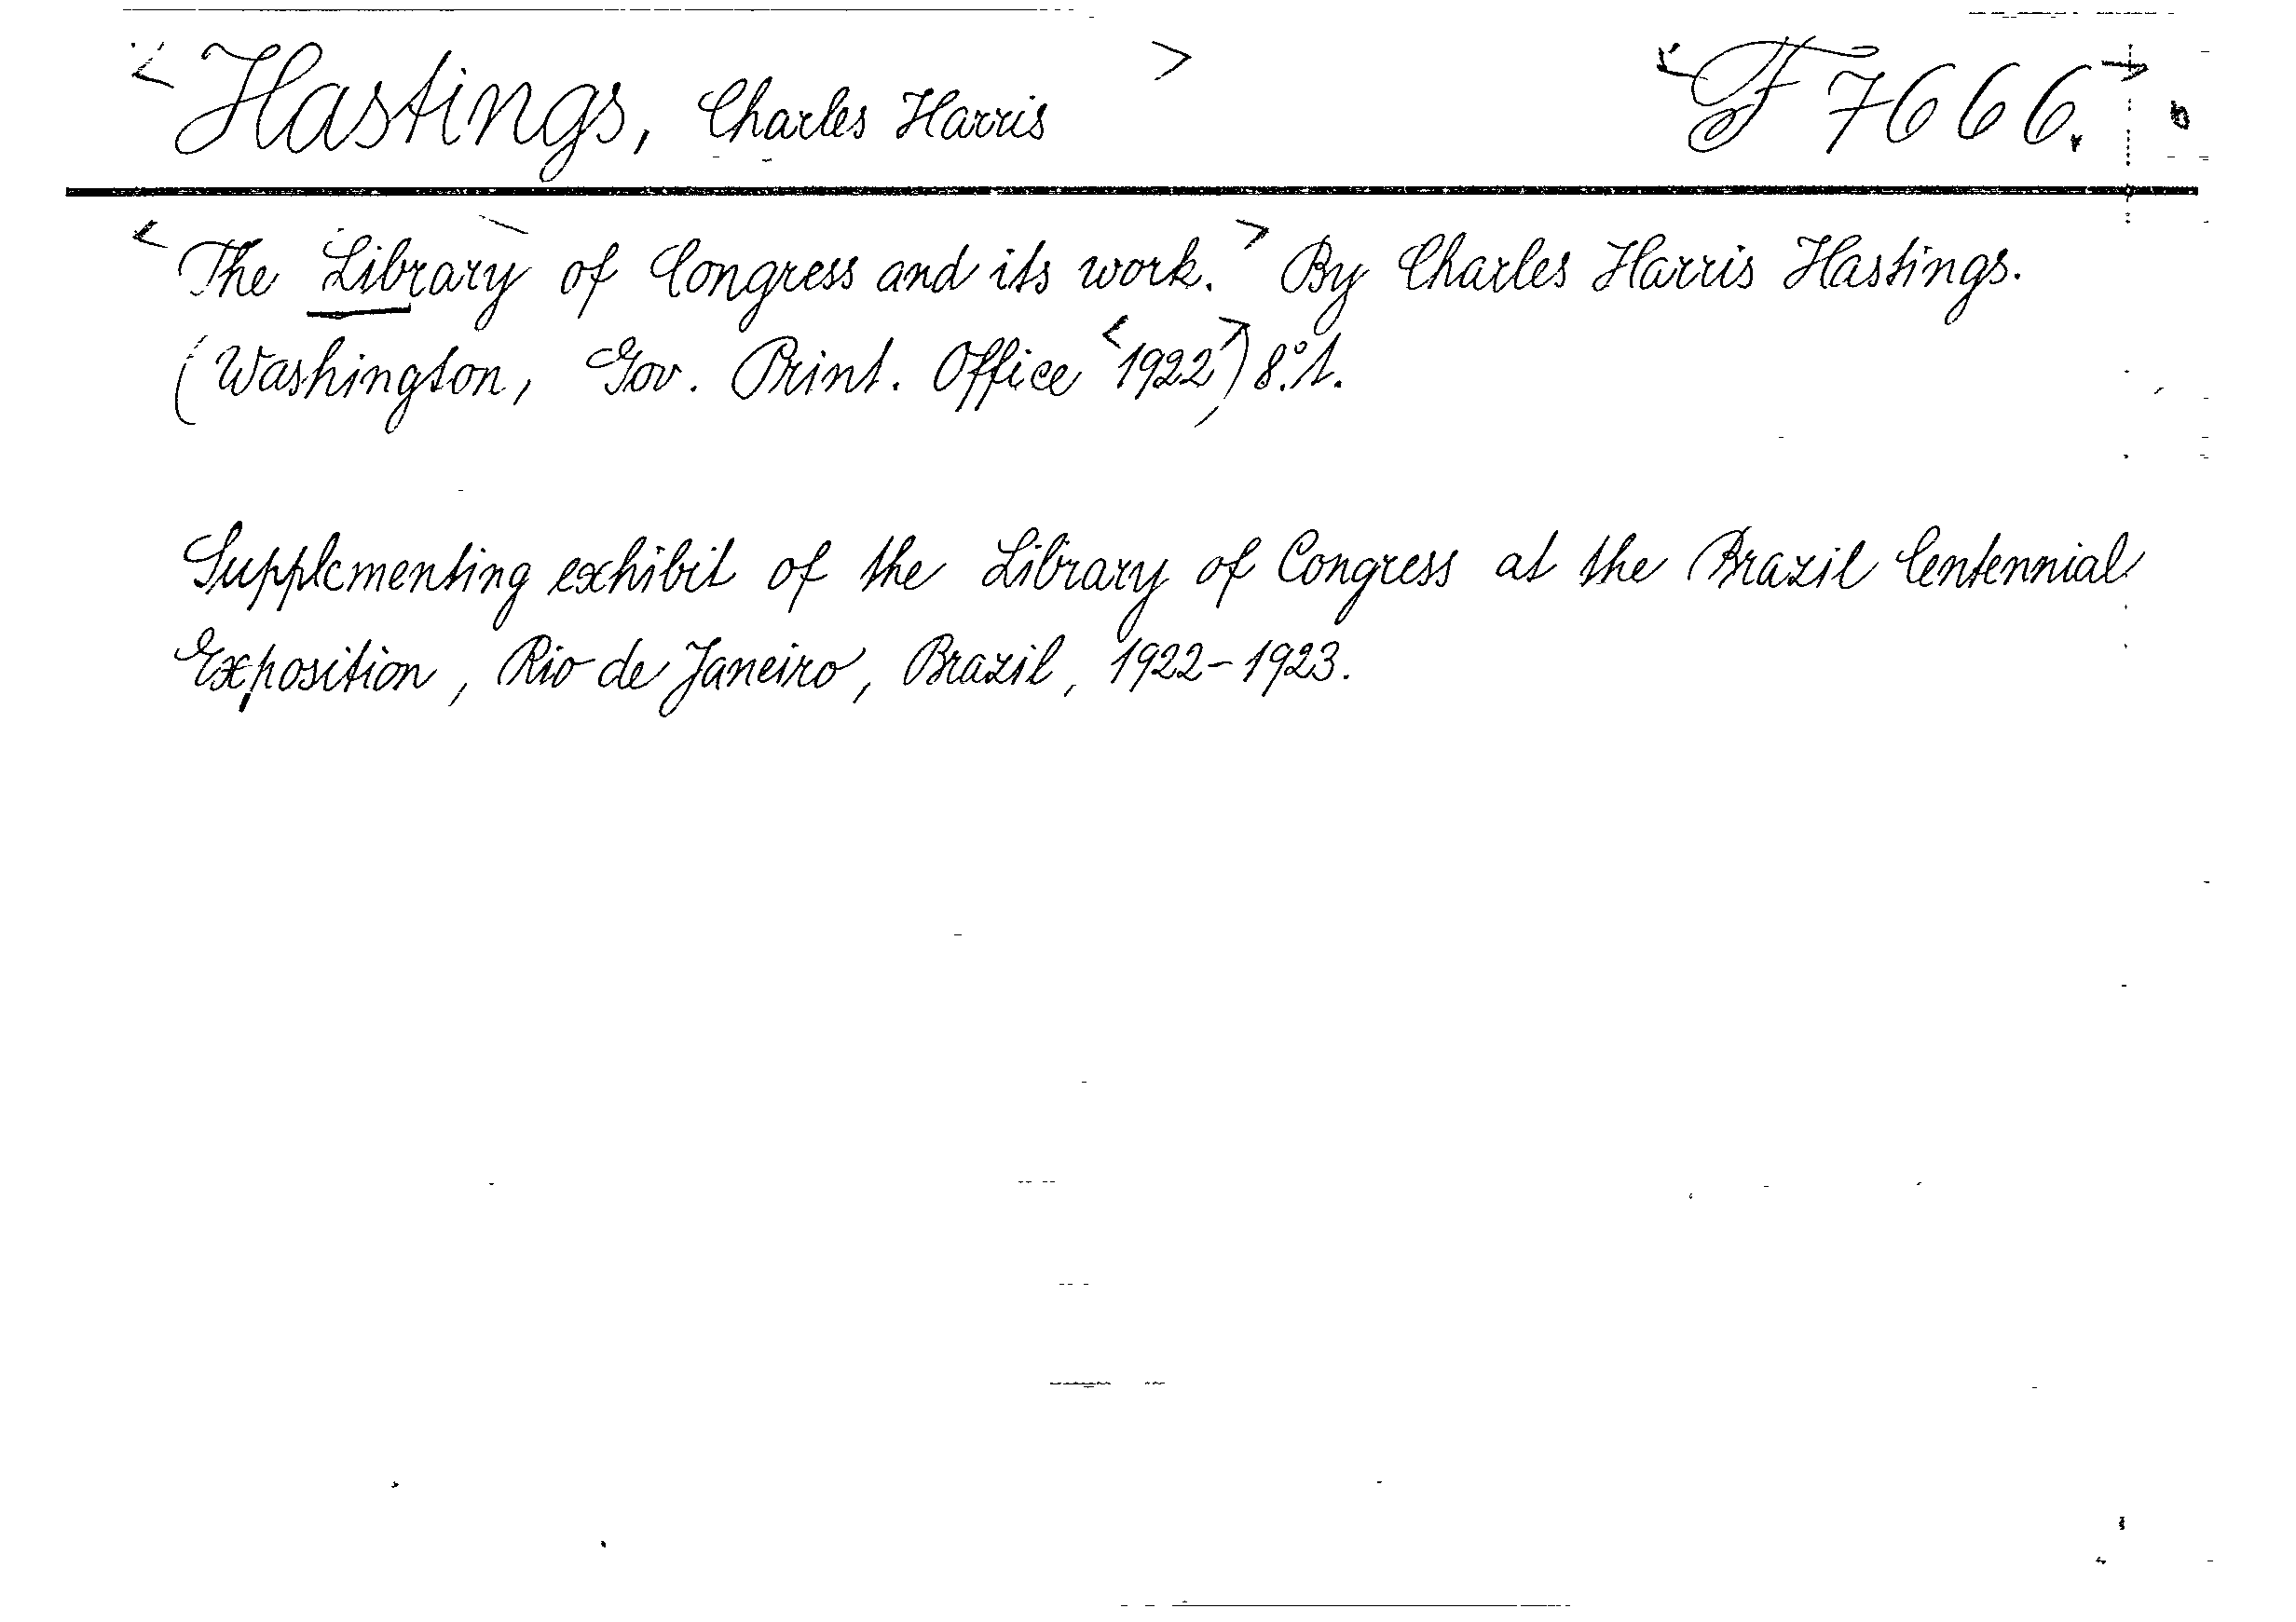 < Hastings, Charles Harris > < F 7666. >
< The Library of Congress and its work. > By Charles Harris Hastings.
(Washington, Gov. Print. Office < 1922 >) 8.° 1.
Supplementing exhibit of the Library of Congress at the Brazil Centennial
Exposition, Rio de Janeiro, Brazil, 1922-1923.